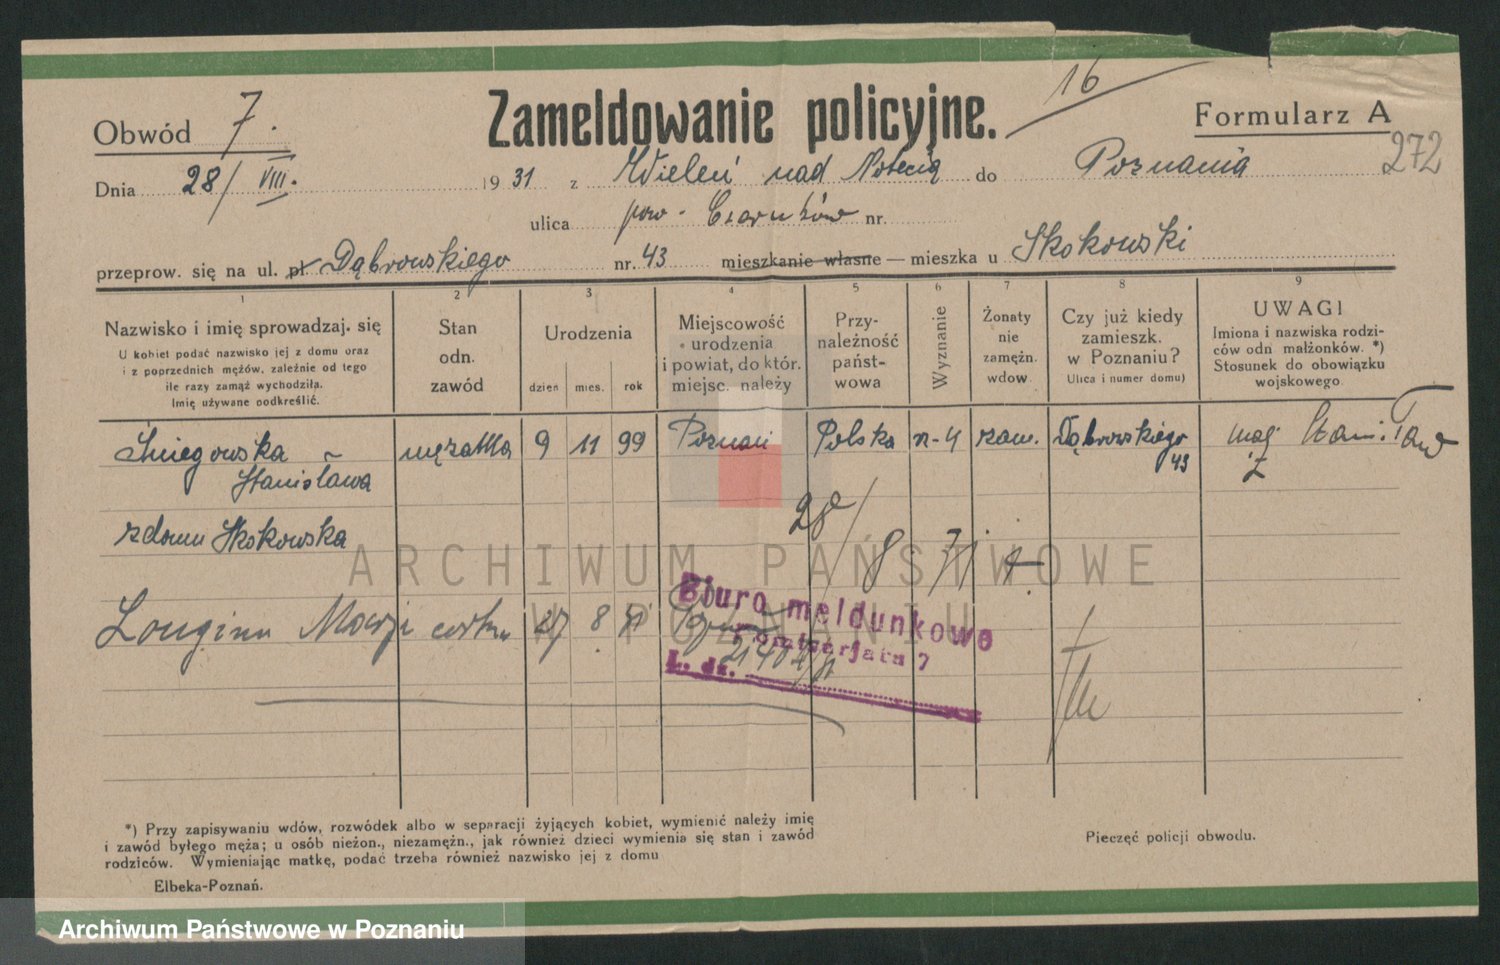 16
Obwód 7. Zameldowanie policyjne. Formularz A
272
Dnia 28/VIII. 1931 z Wieleń nad Notecią do Poznania
ulica pow. Czarnków nr.
przeprow. się na ul. pl. Dąbrowskiego nr. 43 mieszkanie własne — mieszka u Skokowski
1 2 3 4 5 6 7 8 9
Nazwisko i imię sprowadzaj. się
U kobiet podać nazwisko jej z domu oraz
i z poprzednich mężów, zależnie od tego
ile razy zamąż wychodziła.
Imię używane podkreślić.
Stan
odn.
zawód
Urodzenia
dzień mies. rok
Miejscowość
urodzenia
i powiat, do któr.
miejsc. należy
Przy-
należność
państ-
wowa
Wyznanie
Żonaty
nie
zamężn.
wdow.
Czy już kiedy
zamieszk.
w Poznaniu?
Ulica i numer domu)
UWAGI
Imiona i nazwiska rodzi-
ców odn małżonków. *)
Stosunek do obowiązku
wojskowego
Śniegowska mężatka 9 11 99 Poznań Polska rz-k zam. Dąbrowskiego mąż
Stanisława 43
zdomu Skokowska
28/8 31
córka 27 8 31
Biuro meldunkowe
Komisarjatu 7
L. dz.
ARCHIWUM PAŃSTWOWE
W POZNANIU
*) Przy zapisywaniu wdów, rozwódek albo w separacji żyjących kobiet, wymienić należy imię
i zawód byłego męża; u osób nieżon., niezamężn., jak również dzieci wymienia się stan i zawód
rodziców. Wymieniając matkę, podać trzeba również nazwisko jej z domu
Pieczęć policji obwodu.
Elbeka-Poznań.
Archiwum Państwowe w Poznaniu